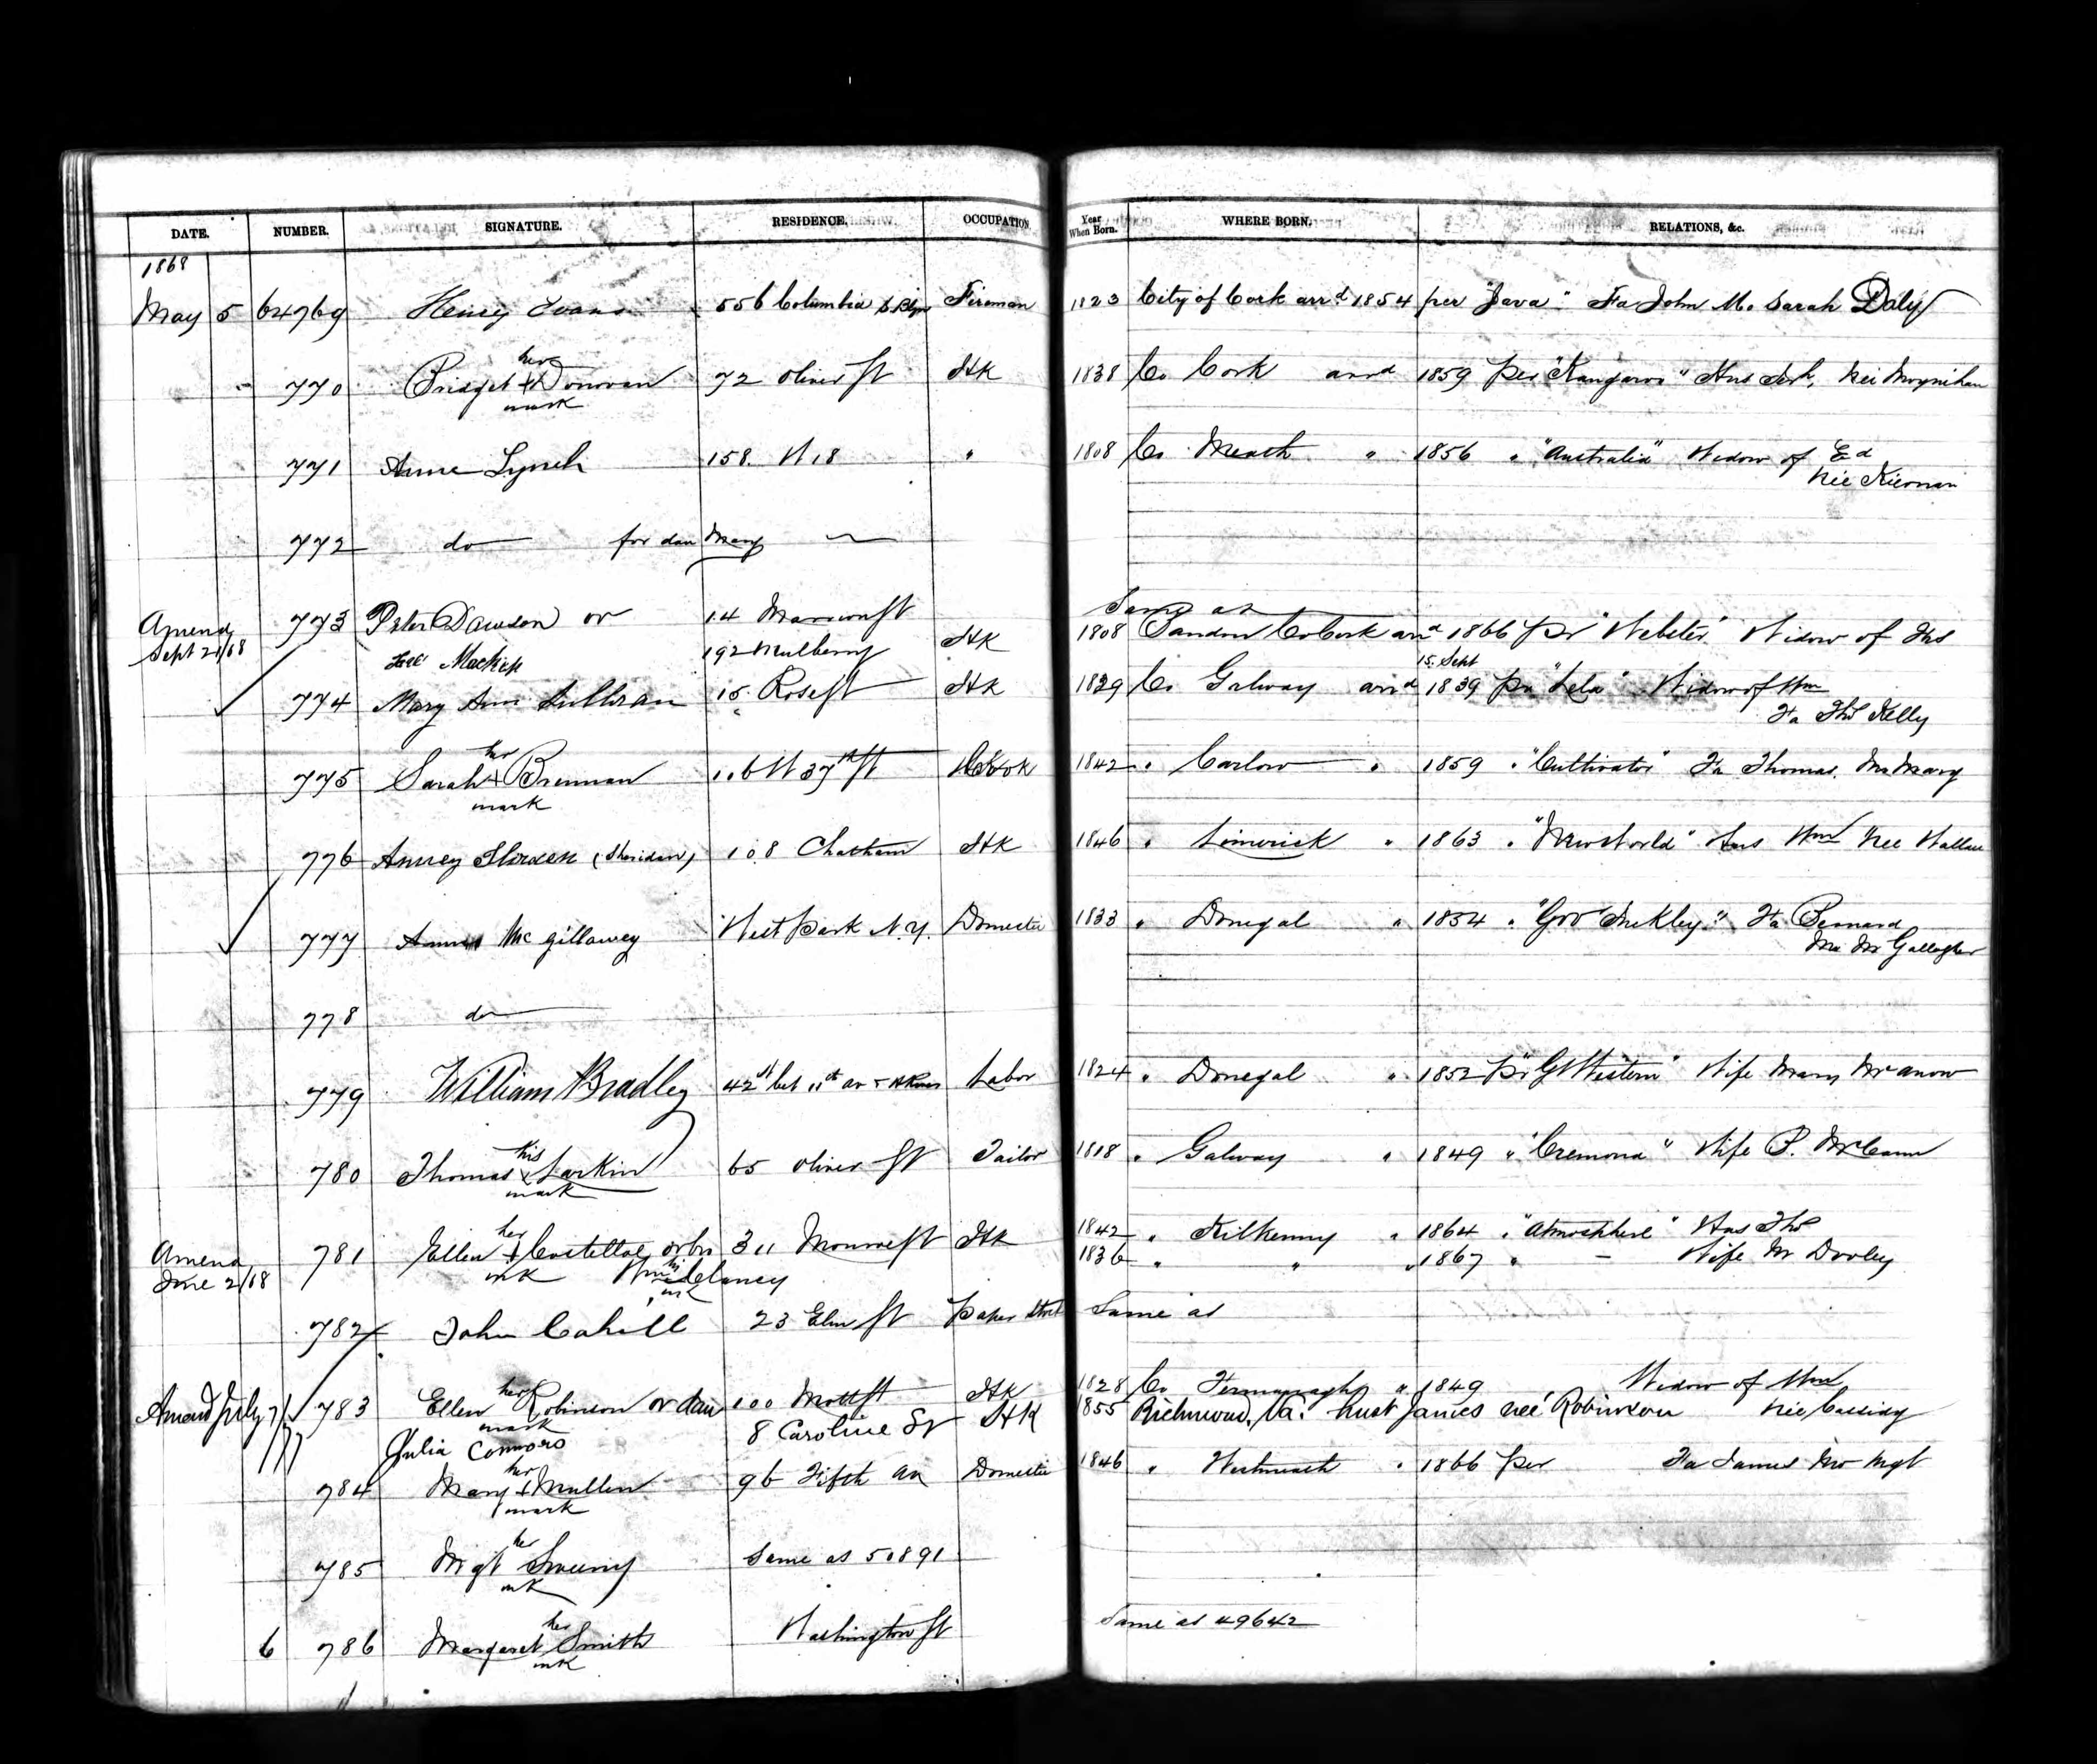 DATE. NUMBER. SIGNATURE. RESIDENCE. OCCUPATION Year When Born. WHERE BORN. RELATIONS, &c.
1868
May 5 64769 Henry Evans 556 Columbia S. Bkyn Fireman 1823 City of Cork arrd 1854 per "Java" Fa John Mo Sarah Daly
770 Bridget her + mark Donovan 72 Oliver St HK 1838 Co Cork arrd 1859 per "Kangaroo" Hus Nee Moynihan
771 Anne Lynch 158. W 18 " 1808 Co Meath " 1856 " "Australia" Widow of Ed
Nee Kiernan
772 do for dau Mary
Same as
Amend Sept 21/68 773 Peter Dawson or 14 St
192 Mulberry HK 1808 Bandon Co Cork arrd 1866 pr "Webster" Widow of
15 Sept
774 Mary Ann Sullivan 15 Rose St HK 1829 Co Galway arrd 1839 pr Widow of Wm
Fa Thos Kelly
775 Sarah her + mark Brennan 106 W 37th St Cook 1842 " Carlow " 1859 " "Cultivator" Fa Thomas. Mo Mary
776 (Sheridan) 108 Chatham HK 1846 " Limerick " 1863 " "New World" Hus Wm Nee
777 Mc gillawey West Park N.Y. Domestic 1833 " Donegal " 1854 " "Gov Fa Bernard
Mo M Gallagher
778 do
779 William Bradley 42d bet 11th av & Labor 1824 " Donegal " 1852 pr "Gt Western" Wife Mary
780 Thomas his x mark Larkin 65 Oliver St Tailor 1818 " Galway " 1849 " "Cremona" Wife B. McCann
Amend June 2/68 781 Ellen her + mk Costelloe or bro 311 Monroe St HK 1842 " Kilkenny " 1864 " "Atmosphere" Hus Thos
Wm his mk Delaney 1836 " " " 1867 " — Wife M Dooley
782 John Cahill 23 Elm St Paper Same as
Amend July 7/ 783 Ellen her mark Robinson or dau 100 Mott St HK 1828 Co Fermanagh " 1849 Widow of Wm
Julia Connors 8 Caroline St HK 1855 Richmond, Va. hust James neé Robinson Nee Cassidy
784 Mary her + mark Mullen 96 Fifth av Domestic 1846 " Westmeath " 1866 per Fa James Mo Mgt
785 Mgt her mk Sweeny Same as 50891
6 786 Margaret her mk Smith Washington St Same as 49642